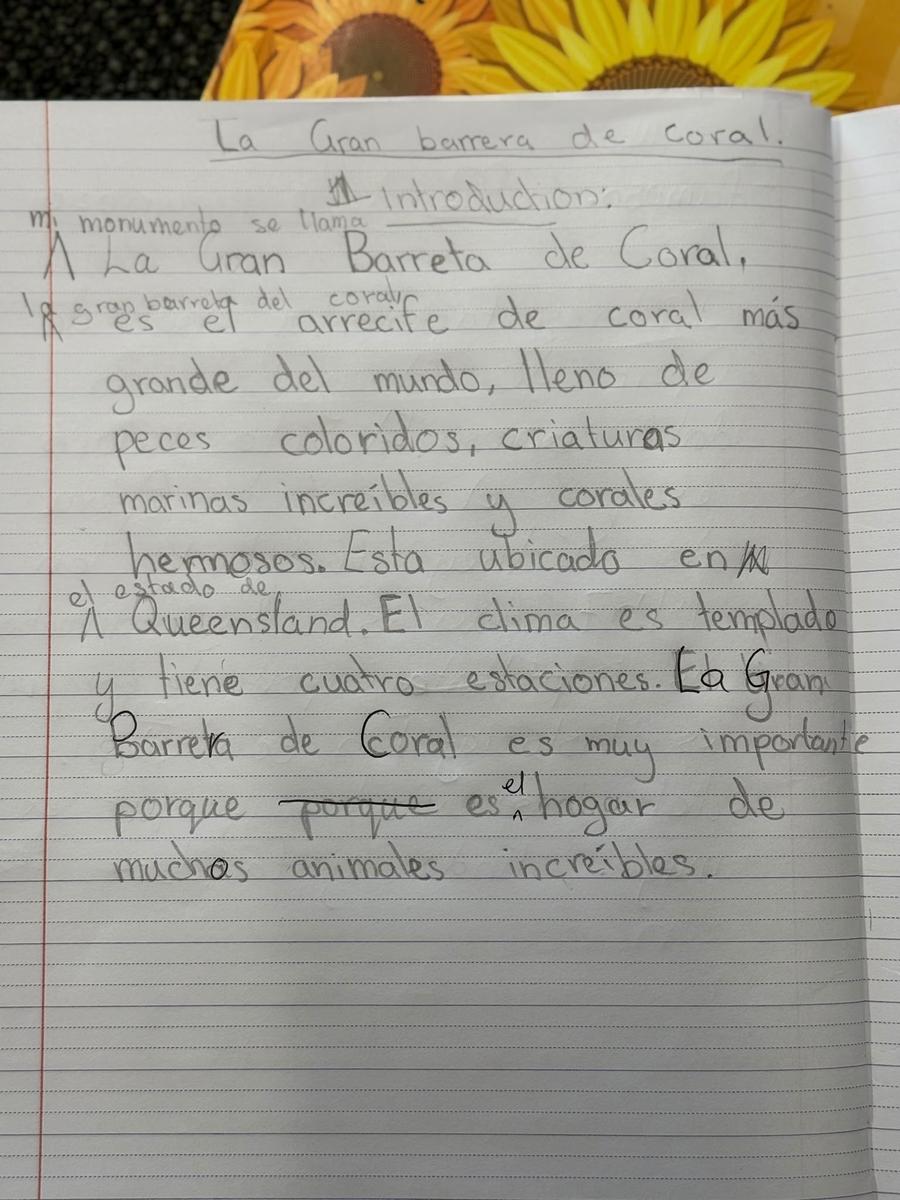 La Gran barrera de coral.
Introduction:
mi monumento se llama
La Gran Barreta de Coral,
la gran barreta del coral
es el arrecife de coral más
grande del mundo, lleno de
peces coloridos, criaturas
marinas increíbles y corales
hermosos. Esta ubicado en
el estado de
Queensland. El clima es templado
y tiene cuatro estaciones. La Gran
Barrera de Coral es muy importante
porque porque es el hogar de
muchos animales increíbles.